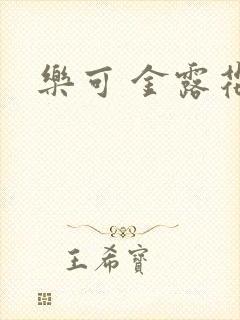 樂可 金露
王希寶